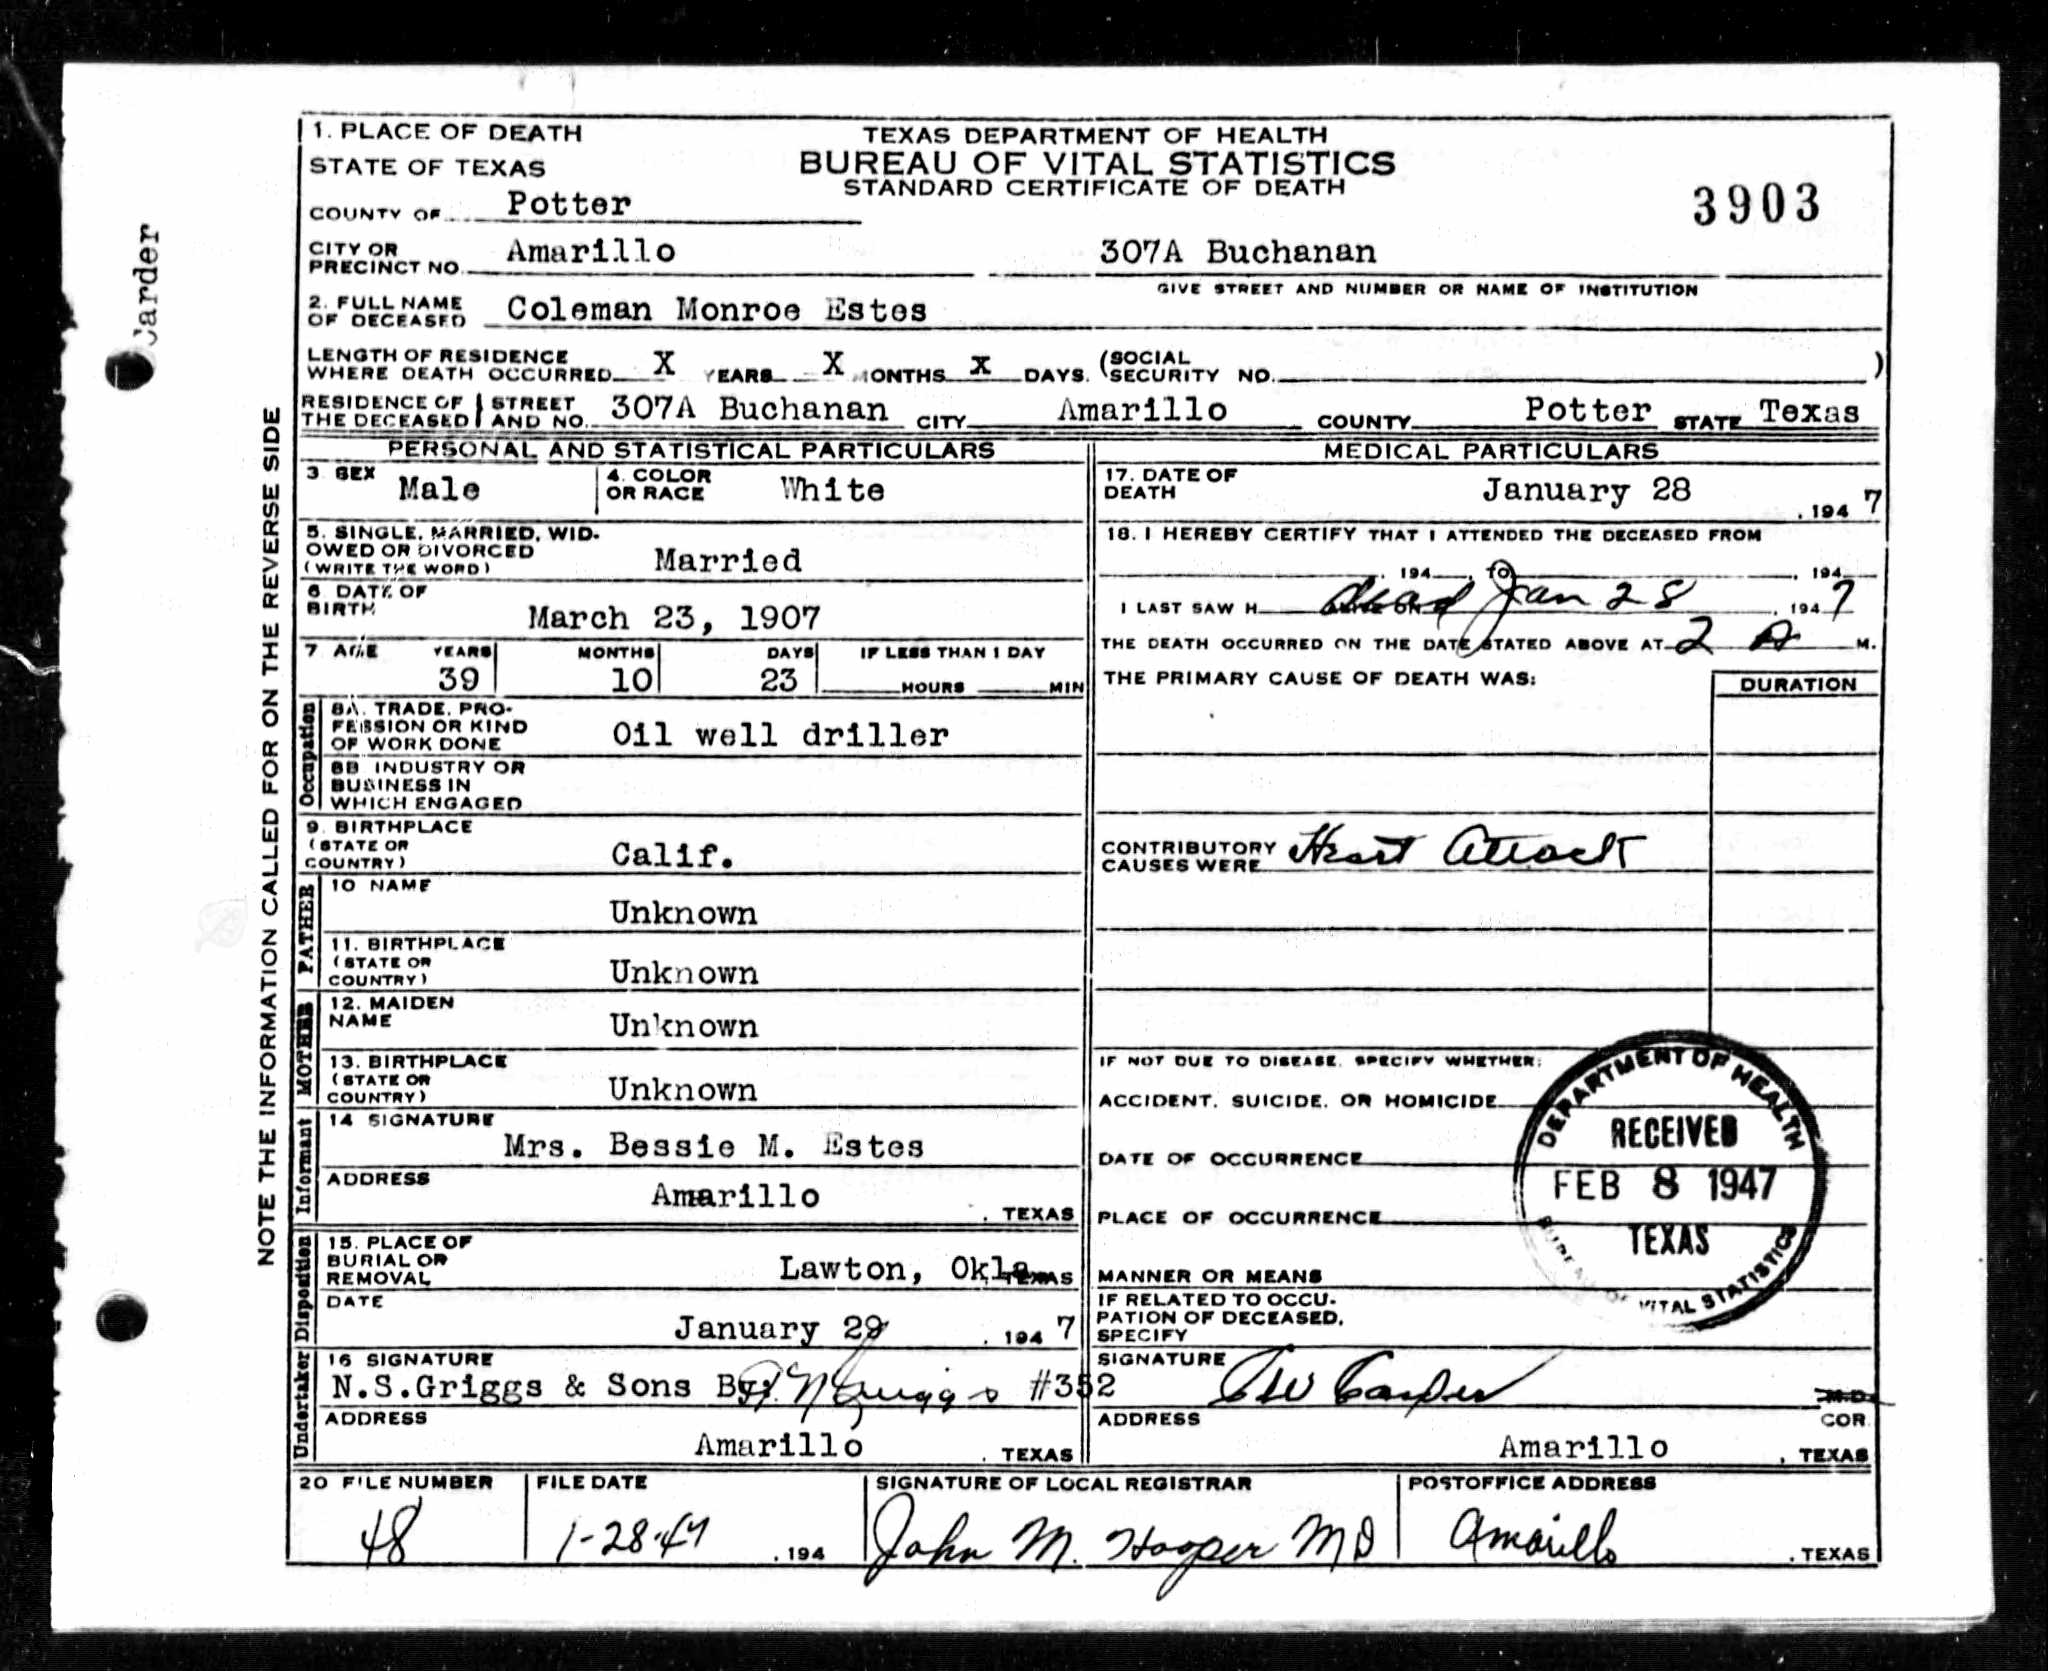 1. PLACE OF DEATH
STATE OF TEXAS
TEXAS DEPARTMENT OF HEALTH
BUREAU OF VITAL STATISTICS
STANDARD CERTIFICATE OF DEATH
3903
COUNTY OF Potter
CITY OR PRECINCT NO. Amarillo 307A Buchanan
GIVE STREET AND NUMBER OR NAME OF INSTITUTION
2. FULL NAME OF DECEASED Coleman Monroe Estes
LENGTH OF RESIDENCE WHERE DEATH OCCURRED X YEARS X MONTHS X DAYS. (SOCIAL SECURITY NO. )
RESIDENCE OF THE DECEASED STREET AND NO. 307A Buchanan CITY Amarillo COUNTY Potter STATE Texas
PERSONAL AND STATISTICAL PARTICULARS
3. SEX Male 4. COLOR OR RACE White
5. SINGLE, MARRIED, WIDOWED OR DIVORCED (WRITE THE WORD) Married
6. DATE OF BIRTH March 23, 1907
7 AGE YEARS 39 MONTHS 10 DAYS 23 IF LESS THAN 1 DAY HOURS MIN
Occupation
8A. TRADE, PROFESSION OR KIND OF WORK DONE Oil well driller
8B INDUSTRY OR BUSINESS IN WHICH ENGAGED
9. BIRTHPLACE (STATE OR COUNTRY) Calif.
FATHER
10 NAME Unknown
11. BIRTHPLACE (STATE OR COUNTRY) Unknown
MOTHER
12. MAIDEN NAME Unknown
13. BIRTHPLACE (STATE OR COUNTRY) Unknown
Informant
14 SIGNATURE Mrs. Bessie M. Estes
ADDRESS Amarillo , TEXAS
Disposition
15. PLACE OF BURIAL OR REMOVAL Lawton, Okla. TEXAS
DATE January 29 , 194 7
Undertaker
16 SIGNATURE N.S.Griggs & Sons By: Griggs #352
ADDRESS Amarillo , TEXAS
MEDICAL PARTICULARS
17. DATE OF DEATH January 28 , 194 7
18. I HEREBY CERTIFY THAT I ATTENDED THE DECEASED FROM
, 194 , TO , 194
I LAST SAW H dead Jan 28 , 194 7
THE DEATH OCCURRED ON THE DATE STATED ABOVE AT 2 A M.
THE PRIMARY CAUSE OF DEATH WAS: DURATION
CONTRIBUTORY CAUSES WERE Heart Attack
IF NOT DUE TO DISEASE, SPECIFY WHETHER:
ACCIDENT, SUICIDE, OR HOMICIDE
DATE OF OCCURRENCE
PLACE OF OCCURRENCE
MANNER OR MEANS
IF RELATED TO OCCUPATION OF DECEASED, SPECIFY
DEPARTMENT OF HEALTH
RECEIVED
FEB 8 1947
TEXAS
BUREAU OF VITAL STATISTICS
SIGNATURE M.D.
COR.
ADDRESS Amarillo , TEXAS
20 FILE NUMBER 48
FILE DATE 1-28-47 , 194
SIGNATURE OF LOCAL REGISTRAR John M. Hooper MD
POSTOFFICE ADDRESS Amarillo , TEXAS
NOTE THE INFORMATION CALLED FOR ON THE REVERSE SIDE